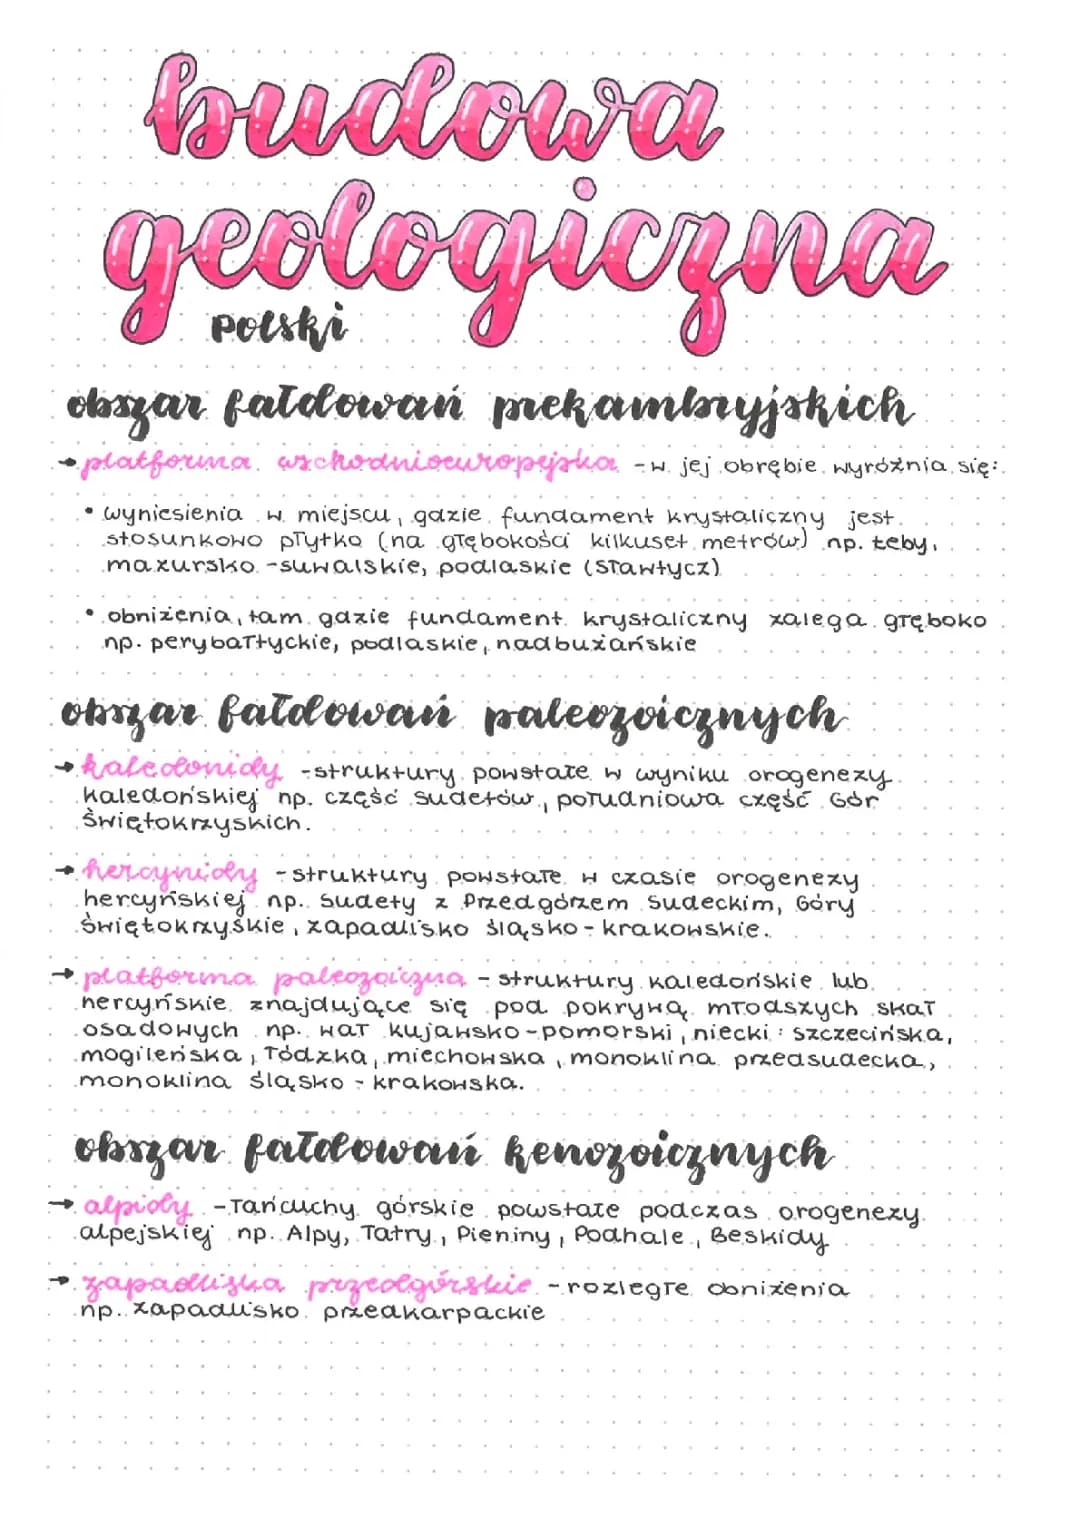 budowa
geologiczna
Polski
obszar fałdowań prekambryjskich
→ platforma wschodnioeuropejska - w jej obrębie wyróżnia się:
• wyniesienia w miejscu, gdzie fundament krystaliczny jest
stosunkowo płytko (na głębokości kilkuset metrów) np. Łeby,
mazursko-suwalskie, podlaskie (Sławtycz)
• obniżenia, tam gdzie fundament krystaliczny zalega głęboko
np. perybałtyckie, podlaskie, nadbużańskie
obszar fałdowań paleozoicznych
→ kaledonidy - struktury powstałe w wyniku orogenezy
kaledońskiej np. część Sudetów, południowa część Gór
Świętokrzyskich.
→ hercynidy - struktury powstałe w czasie orogenezy
hercyńskiej np. Sudety z Przedgórzem Sudeckim, Góry
Świętokrzyskie, zapadlisko śląsko-krakowskie.
→ platforma paleozoiczna - struktury kaledońskie lub
hercyńskie znajdujące się pod pokrywą młodszych skał
osadowych np. wał kujawsko-pomorski, niecki: szczecińska,
mogileńska, łódzka, miechowska, monoklina przedsudecka,
monoklina śląsko-krakowska.
obszar fałdowań kenozoicznych
→ alpidy - łańcuchy górskie powstałe podczas orogenezy
alpejskiej np. Alpy, Tatry, Pieniny, Podhale, Beskidy
→ zapadliska przedgórskie - rozległe obniżenia
np. zapadlisko przedkarpackie